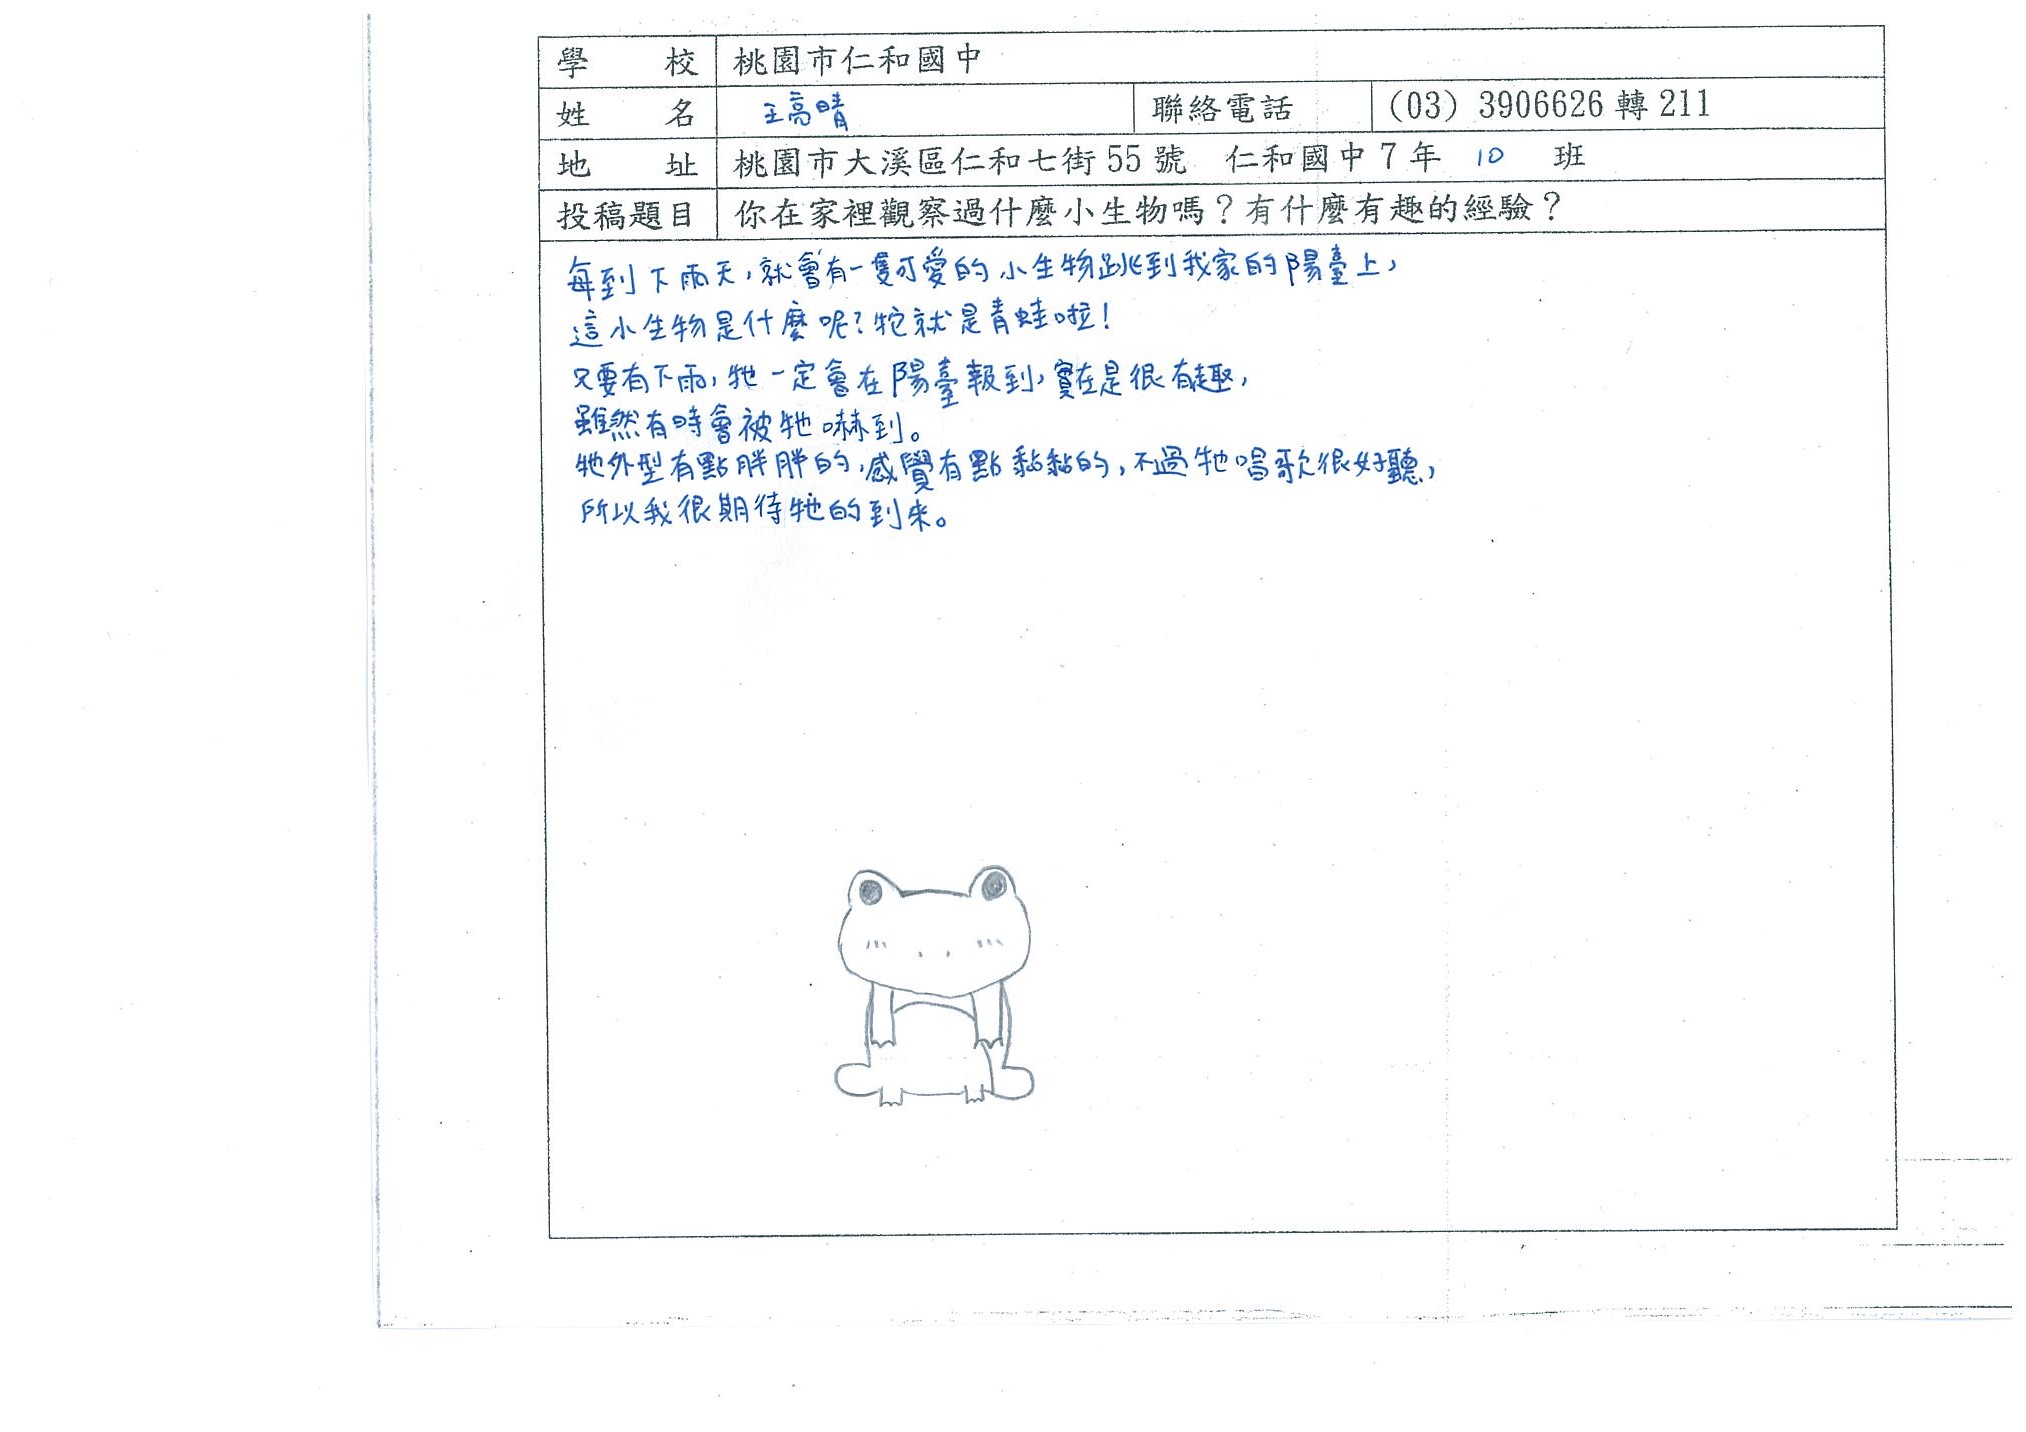 學校 桃園市仁和國中
姓名 王高晴 聯絡電話 (03) 3906626 轉 211
地址 桃園市大溪區仁和七街 55 號 仁和國中 7 年 10 班
投稿題目 你在家裡觀察過什麼小生物嗎？有什麼有趣的經驗？
每到下雨天，就會有一隻可愛的小生物跳到我家的陽臺上，
這小生物是什麼呢？牠就是青蛙啦！
只要有下雨，牠一定會在陽臺報到，實在是很有趣，
雖然有時會被牠嚇到。
牠外型有點胖胖的，感覺有點黏黏的，不過牠唱歌很好聽，
所以我很期待牠的到來。